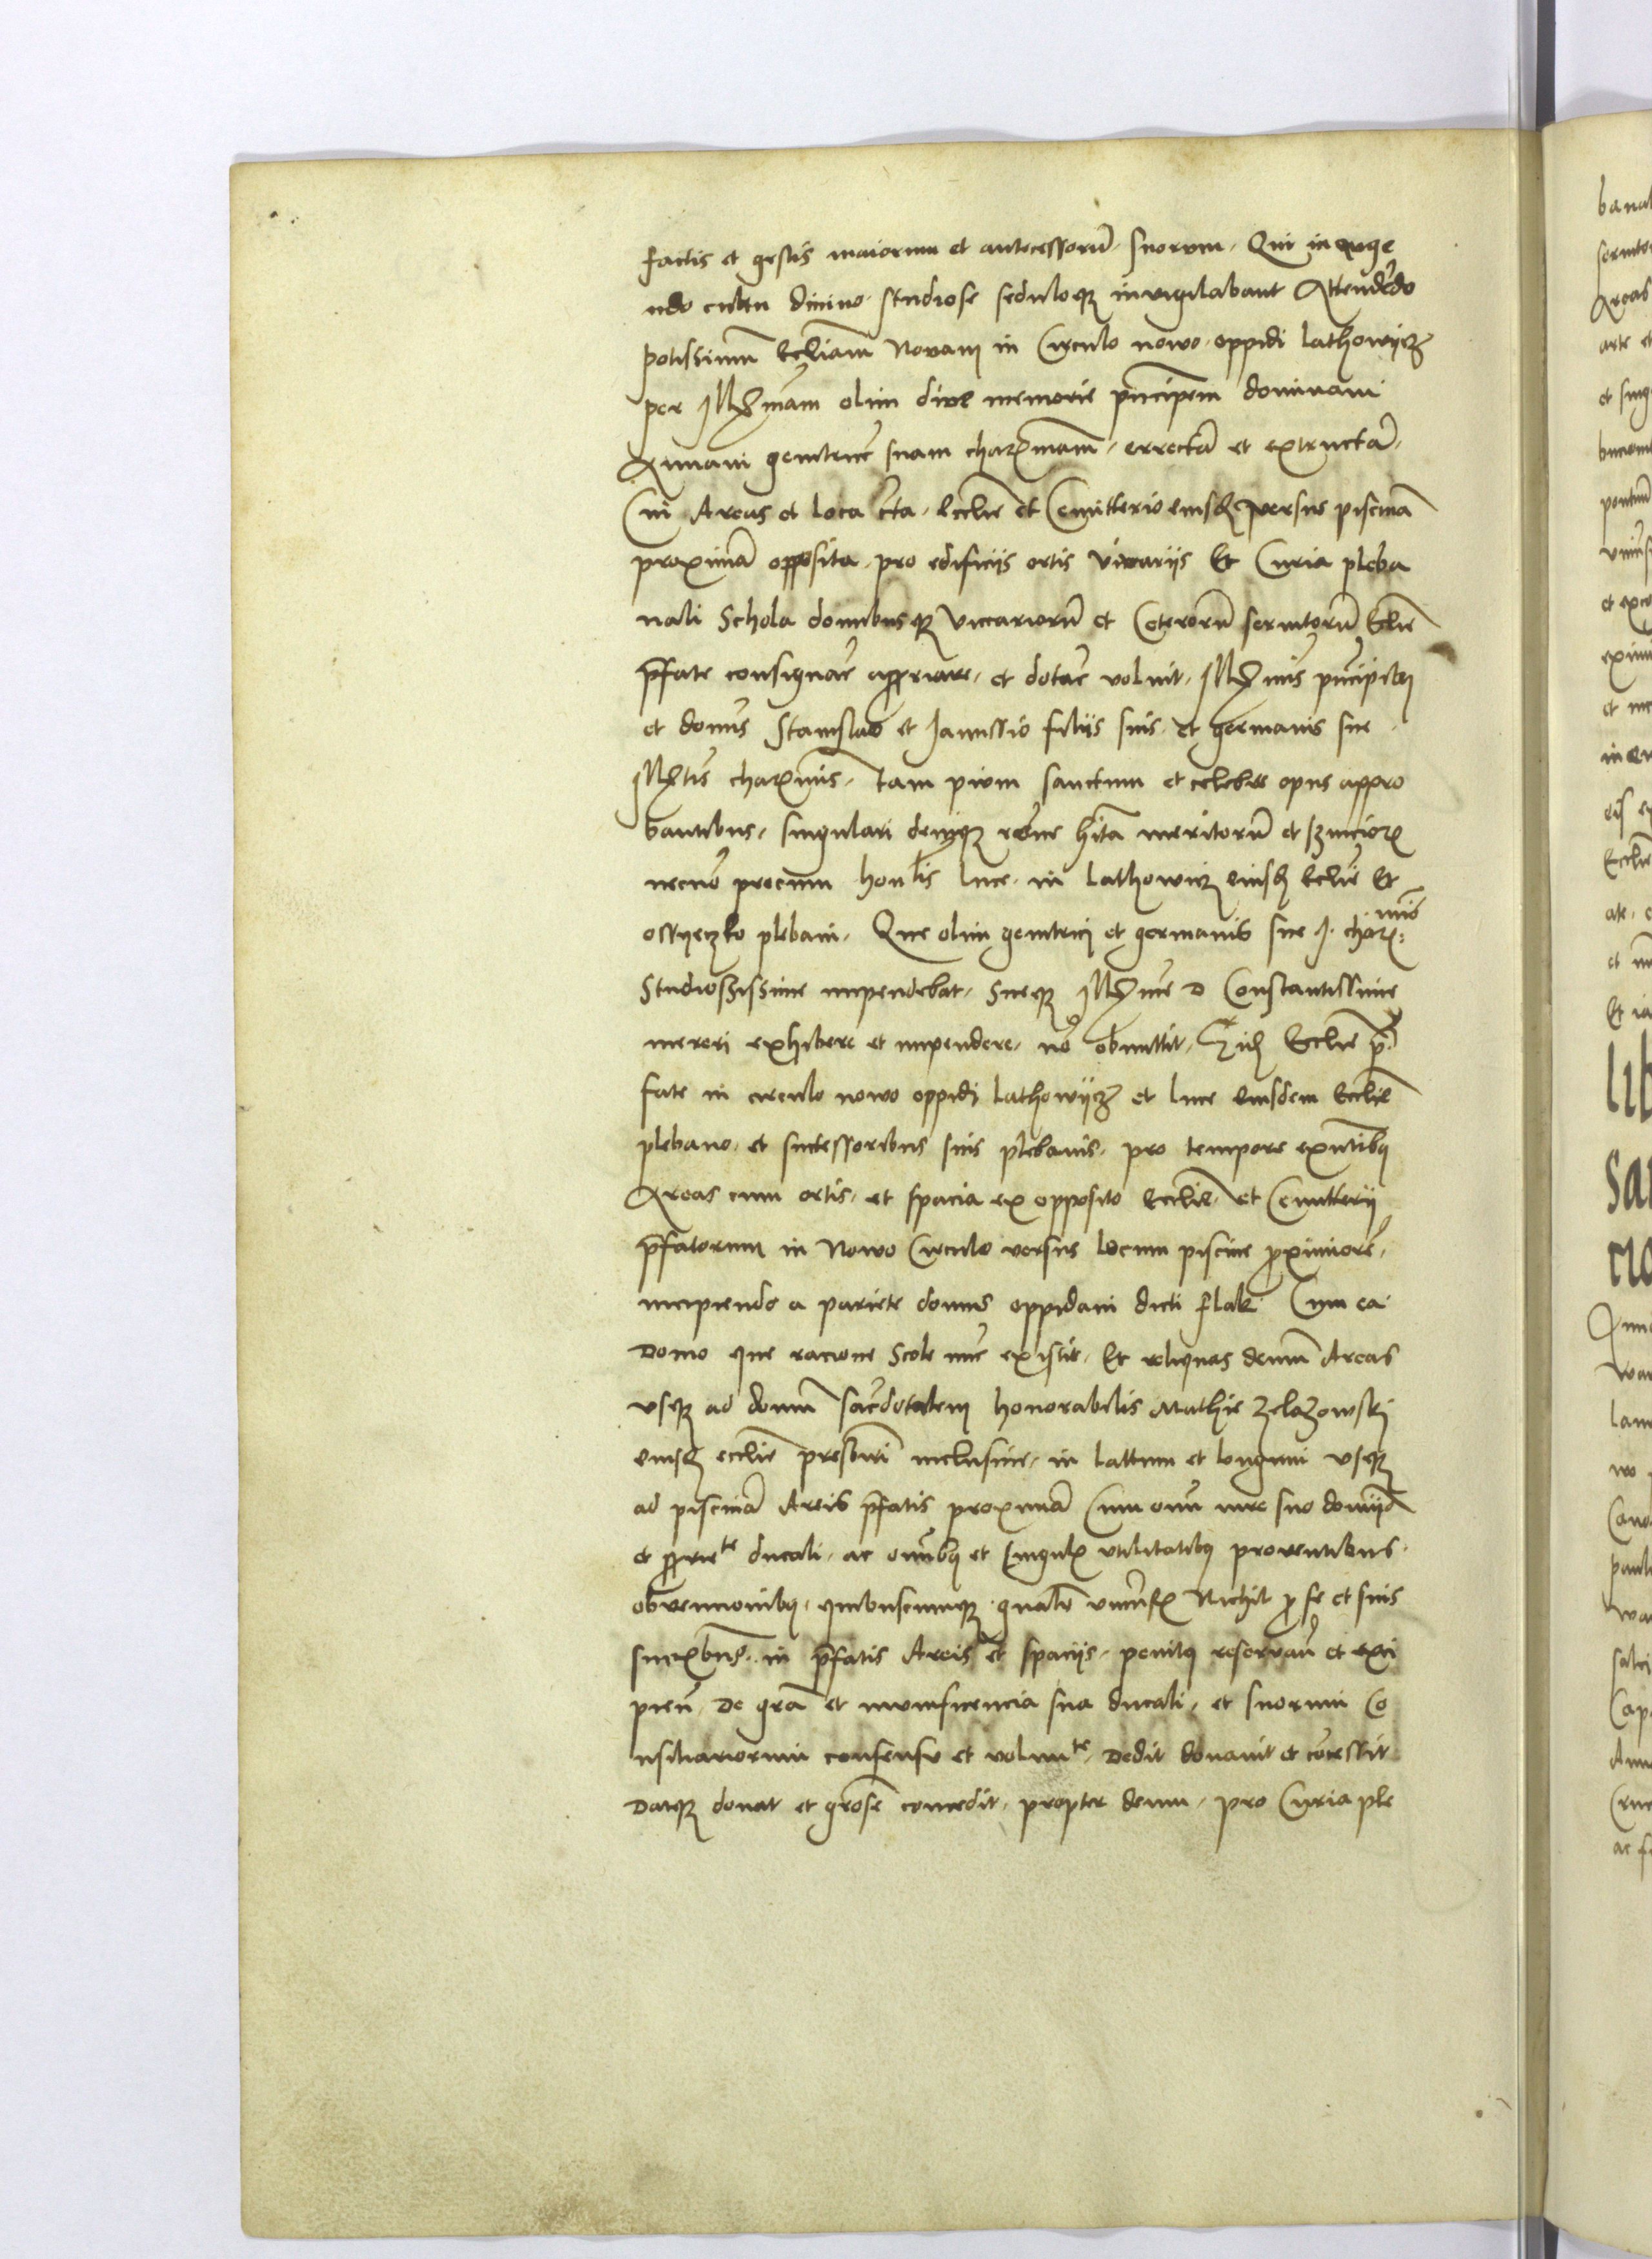 factis et gestis maiorum et antecessorū suorum Qui in auge
ndo cultu divino studiose seduloqꝫ invigilabant Attendēdo
potissimū Eccliam Novam in Circulo nowo oppidi Lathowÿcꝫ
per Illꝫmam olim dive memorie pncipem dominam
Annam genitricē suam charꝫmam errectā et extructā
Cui Areas et loca ecclie et Cemitterio eiusdꝫ versus piscinā
proximā opposita pro edificiis ortis vivariis Et Curia pleba
nali Schola domibusqꝫ viccariorū et Ceterorū servitorū Ecclie
pfate consignare appriare et dotare voluit Illꝫmis pncipibꝫ
et domīs Stanislao et Janussio filiis suis et germanis sue
Illꝫtis charꝫmis tam pium sanctum et celebre opus appro
bantibus singulari deniqꝫ rōne hita meritorū et
necnō precum honlis luce in lathowicꝫ eiusdꝫ Ecclie Et
plebani Que olim genitrici et germanis sue J charꝫmis
Studiosissime impendebat Sueqꝫ Illꝫme D Constantissime
mereri exhibere et impendere nō obmittit Ecclie p
fate in circulo nowo oppidi Lathowÿcꝫ et luce eiusdem Ecclie
plebano et successoribus suis plebanis pro tempore exntibꝫ
Areas cum ortis et spacia ex opposito Ecclie et Cemitterii
pfatorum in Nowo Circulo versus locum piscine pximiorē
incipiendo a pariete domus oppidani dicti flak Cum ea
Domo que racione Scole nūc existit Et reliquas demū Areas
vsqꝫ ad domū sacdotalem honorabilis Mathie Zelazowskj
eiusdꝫ ecclie presbiri inclusive in lattum et longum vsqꝫ
ad piscinā Areis pfatis proximā Cum omī iure suo domiio
et pprietᵗᵉ ducali ac omībꝫ et singulꝫ vtilitatibꝫ proventibus
obvencionibꝫ quibuscumqꝫ gnalr Nichil p se et suis
succꝫbus in pfatis Areis et spaciis penitꝫ reservan et exci
pien De gra et munificencia sua ducali et suorum Co
nsiliariorum consensu et volunᵗᵉ Dedit donavit et cōcessit
Datqꝫ donat et grose concedit propter deum pro Curia ple